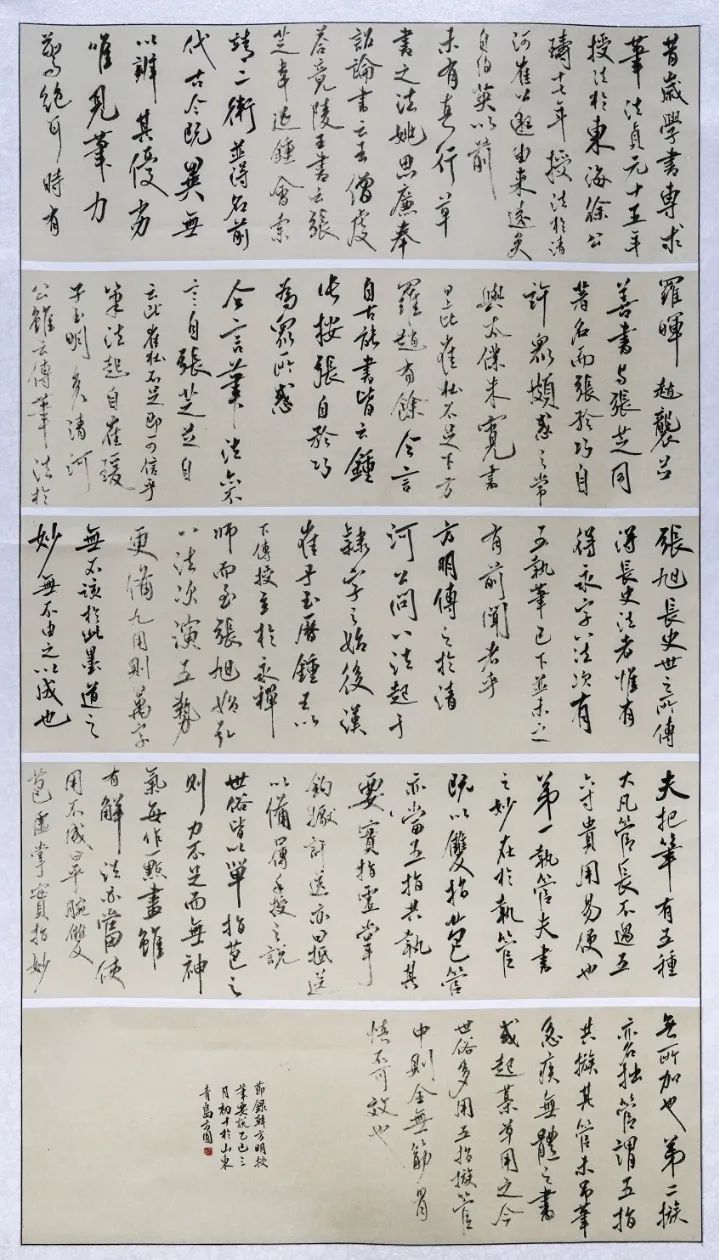 昔歲學書專求
筆法貞元十五年
授法於東海徐公
璹十七年授法於清
河崔公邈由來遠矣
自伯英以前
未有真行草
書之法姚思廉奉
詔論書云王僧虔
荅竟陵王書云張
芝韋誕鍾會索
靖二衛並得名前
代古今既異無
以辨其優劣
唯見筆力
驚絕耳時有
羅暉趙襲並
善書與張芝同
著名而張矜巧自
許眾頗惑之常
與太僕朱寬書
曰上比崔杜不足下方
羅趙有餘今言
自古能書皆云鍾
張按張自矜巧
為眾所惑
今言筆法亦不
言自張芝芝自
云比崔杜不足即可信乎
筆法起自崔瑗
子玉明矣清河
公雖云傳筆法於
張旭長史世之所傳
得長史法者惟有
得永字八法次有
五執筆已下並未之
有前聞者乎
方明傳之於清
河公問八法起于
隸字之始後漢
崔子玉歷鍾王以
下傳授至於永禪
師而至張旭始弘
八法次演五勢
更備九用則萬字
無不該於此墨道之
妙無不由之以成也
夫把筆有五種
大凡管長不過五
六寸貴用易便也
第一執管夫書
之妙在於執管
既以雙指苞管
亦當五指共執其
要實指虛掌
鉤擫訐送亦曰抵送
以備口傳手授之說
世俗皆以單指苞之
則力不足而無神
氣每作一點畫雖
有解法亦當使
用不成曰平腕雙
苞虛掌實指妙
無所加也第二撮
亦名拙管謂五指
共撮其管末吊筆
急疾無體之書
或起藁草用之今
世俗多用五指撮管
中則全無筋骨
慎不可效也
節錄韓方明授
筆要說乙巳三
月初十於山東
青島方圓